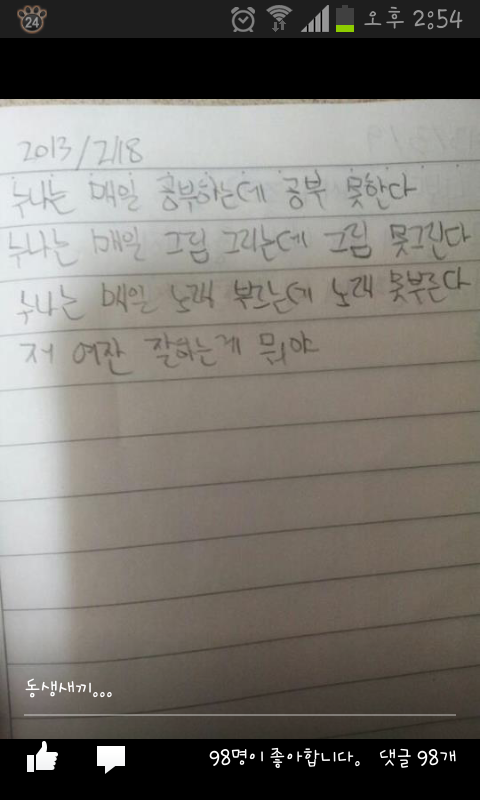 24
오후 2:54
2013/2/18
누나는 매일 공부하는데 공부 못한다
누나는 매일 그림 그리는데 그림 못그린다
누나는 매일 노래 부르는데 노래 못부른다
저 여잔 잘하는게 뭐야
동생새끼...
98명이 좋아합니다. 댓글 98개